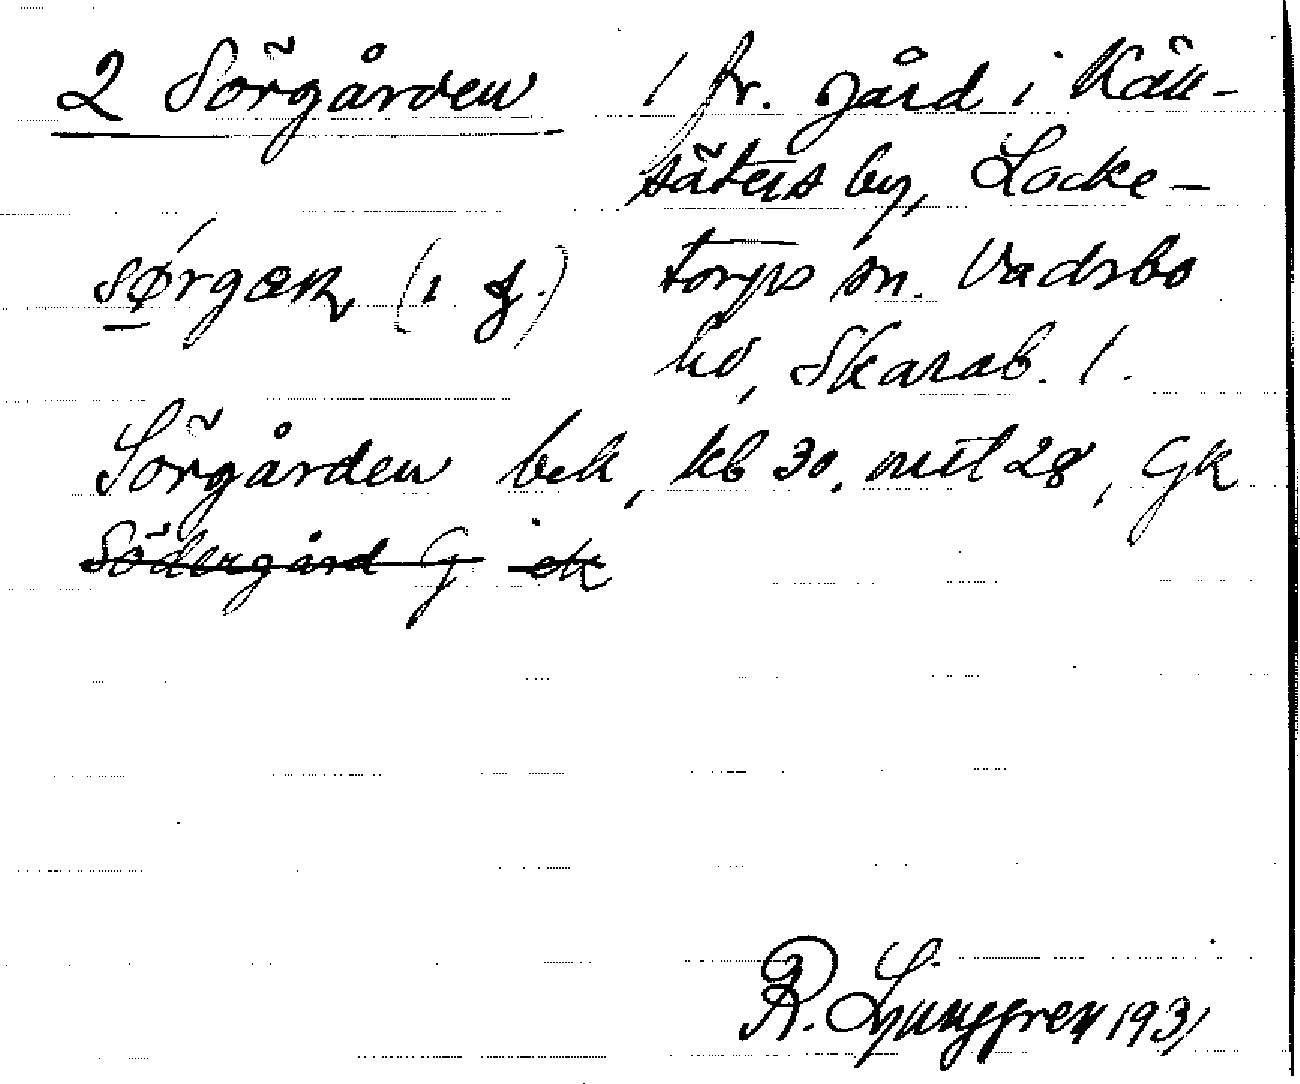 2 Sörgården 1 fr. gård i Käll-
säters by, Locke-
torps sn. Vadsbo
hd, Skarab. l.
sørgæɴ, (1 f.)
Sörgården bek, kb 30, mtl 28, Gk
Södergård G ek
R. Ljunggren 1931